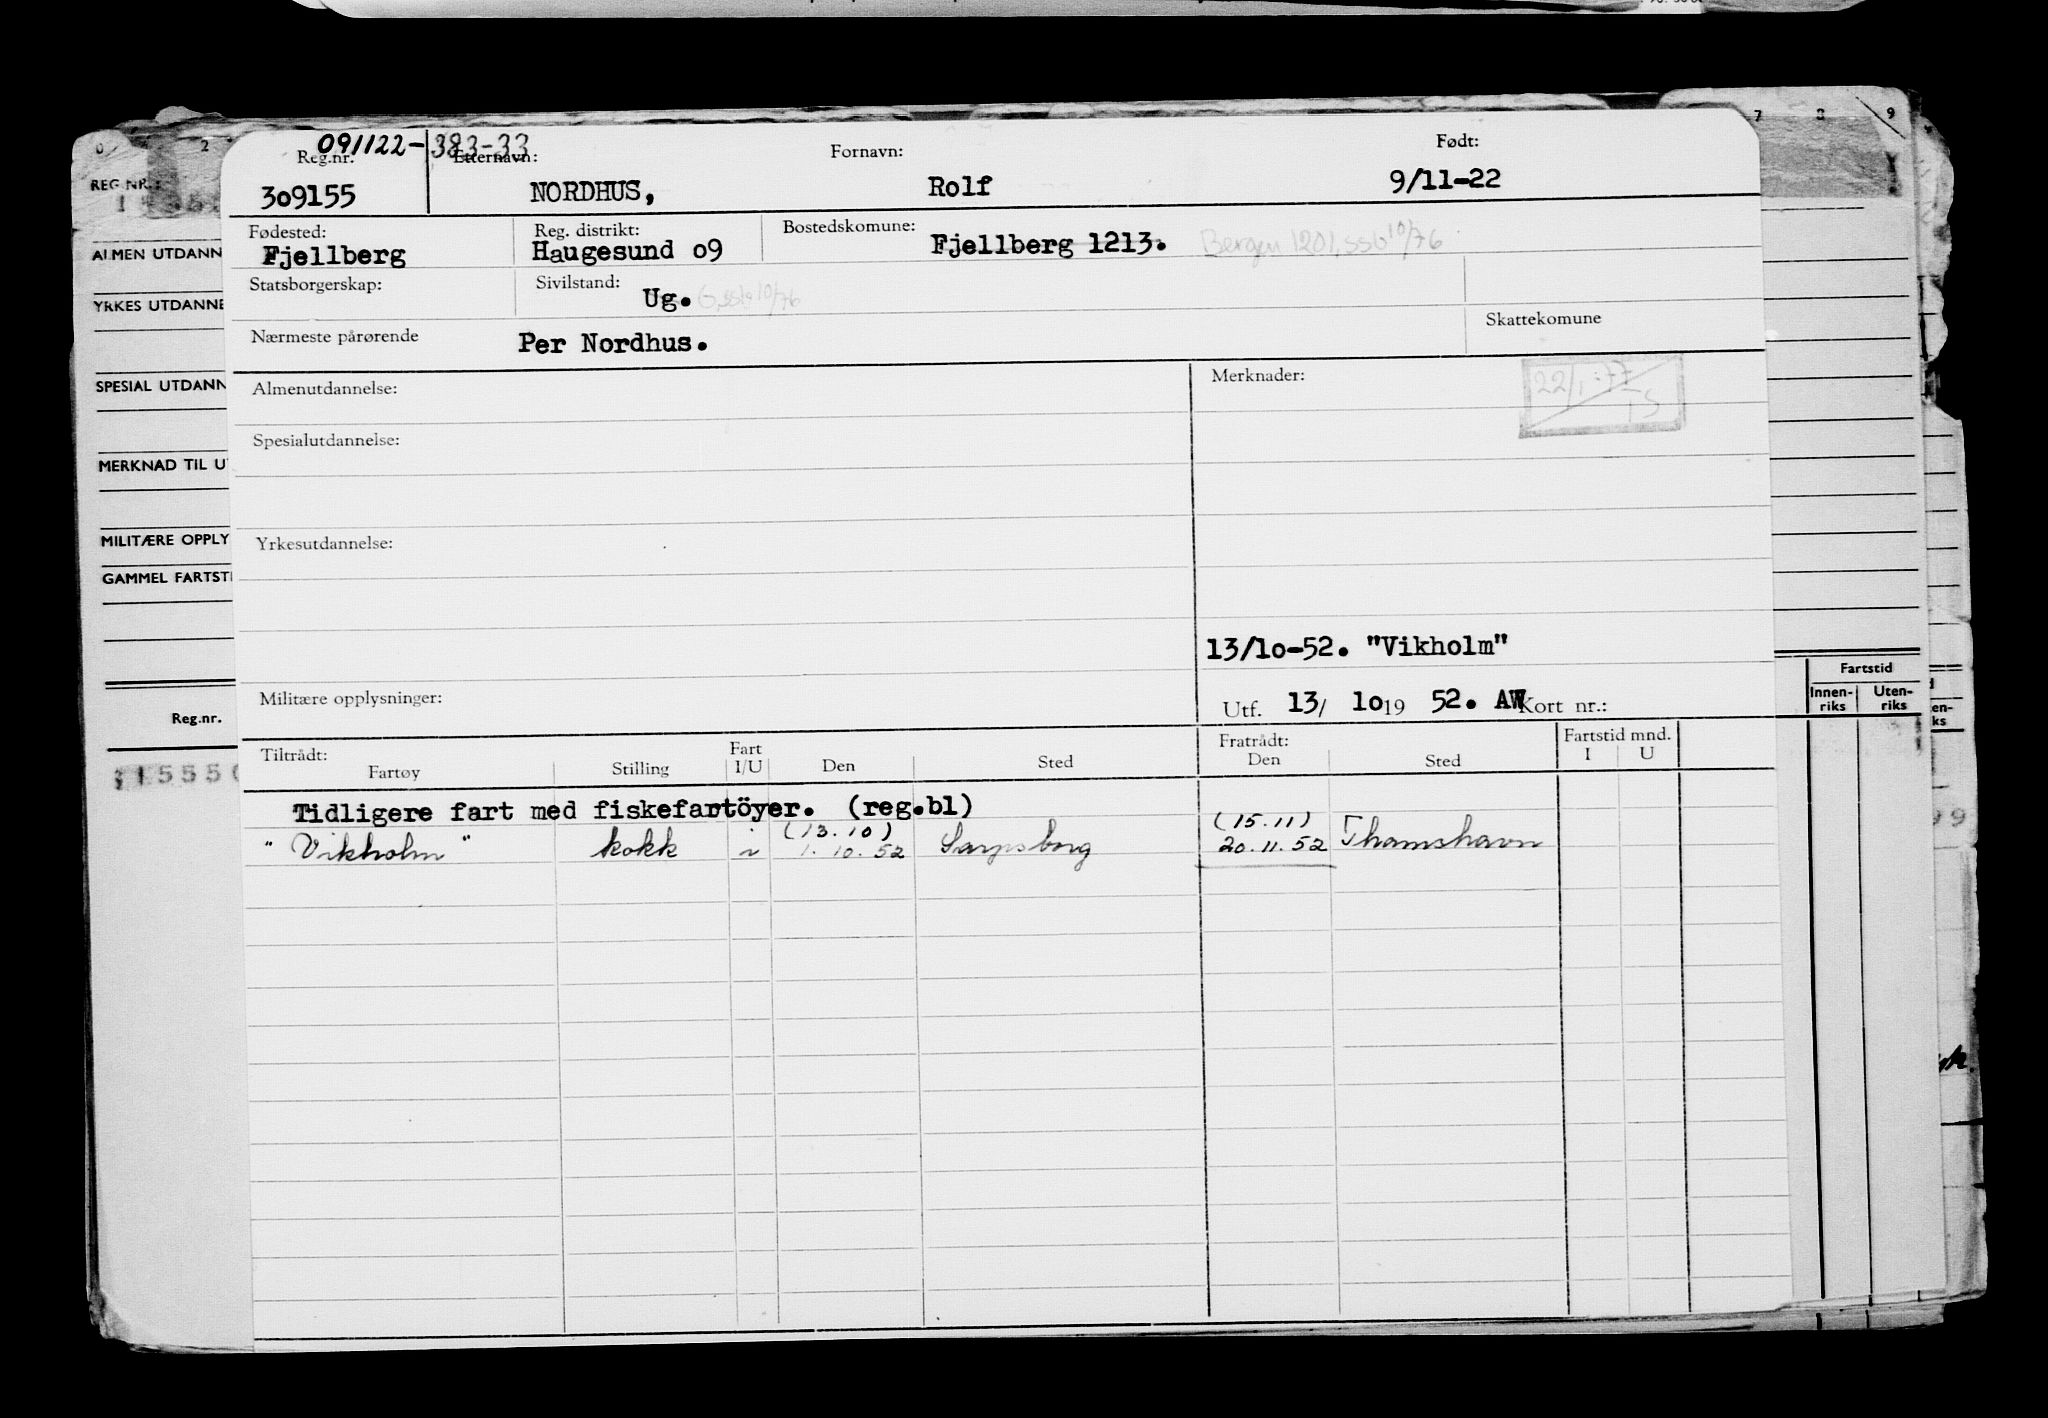 7 8 9
0 2
091122-383-33
Reg.nr. Etternavn: Fornavn: Født:
309155 NORDHUS, Rolf 9/11-22
REG.NR.:
Fødested: Reg. distrikt: Bostedskomune:
Fjellberg Haugesund o9 Fjellberg 1213. Bergen 1201, ssb 10/76
ALMEN UTDANN
Statsborgerskap: Sivilstand: Ug. G, ssb 10/76
YRKES UTDANNE
Nærmeste pårørende Per Nordhus. Skattekomune
SPESIAL UTDANN
Almenutdannelse: Merknader:
22/1-77
TS
Spesialutdannelse:
MERKNAD TIL U
MILITÆRE OPPLY
Yrkesutdannelse:
GAMMEL FARTSTI
13/1o-52. "Vikholm"
Militære opplysninger: Utf. 13/ 1o 19 52. AW Kort nr.:
Fartstid
Innen-riks Uten-riks
Reg.nr.
Tiltrådt: Fart Fratrådt: Fartstid mnd.
Fartøy Stilling I/U Den Sted Den Sted I U
Tidligere fart med fiskefartöyer. (reg.bl)
(13.10) (15.11)
"Vikholm" kokk i 1.10.52 Sarpsborg 20.11.52 Thamshavn